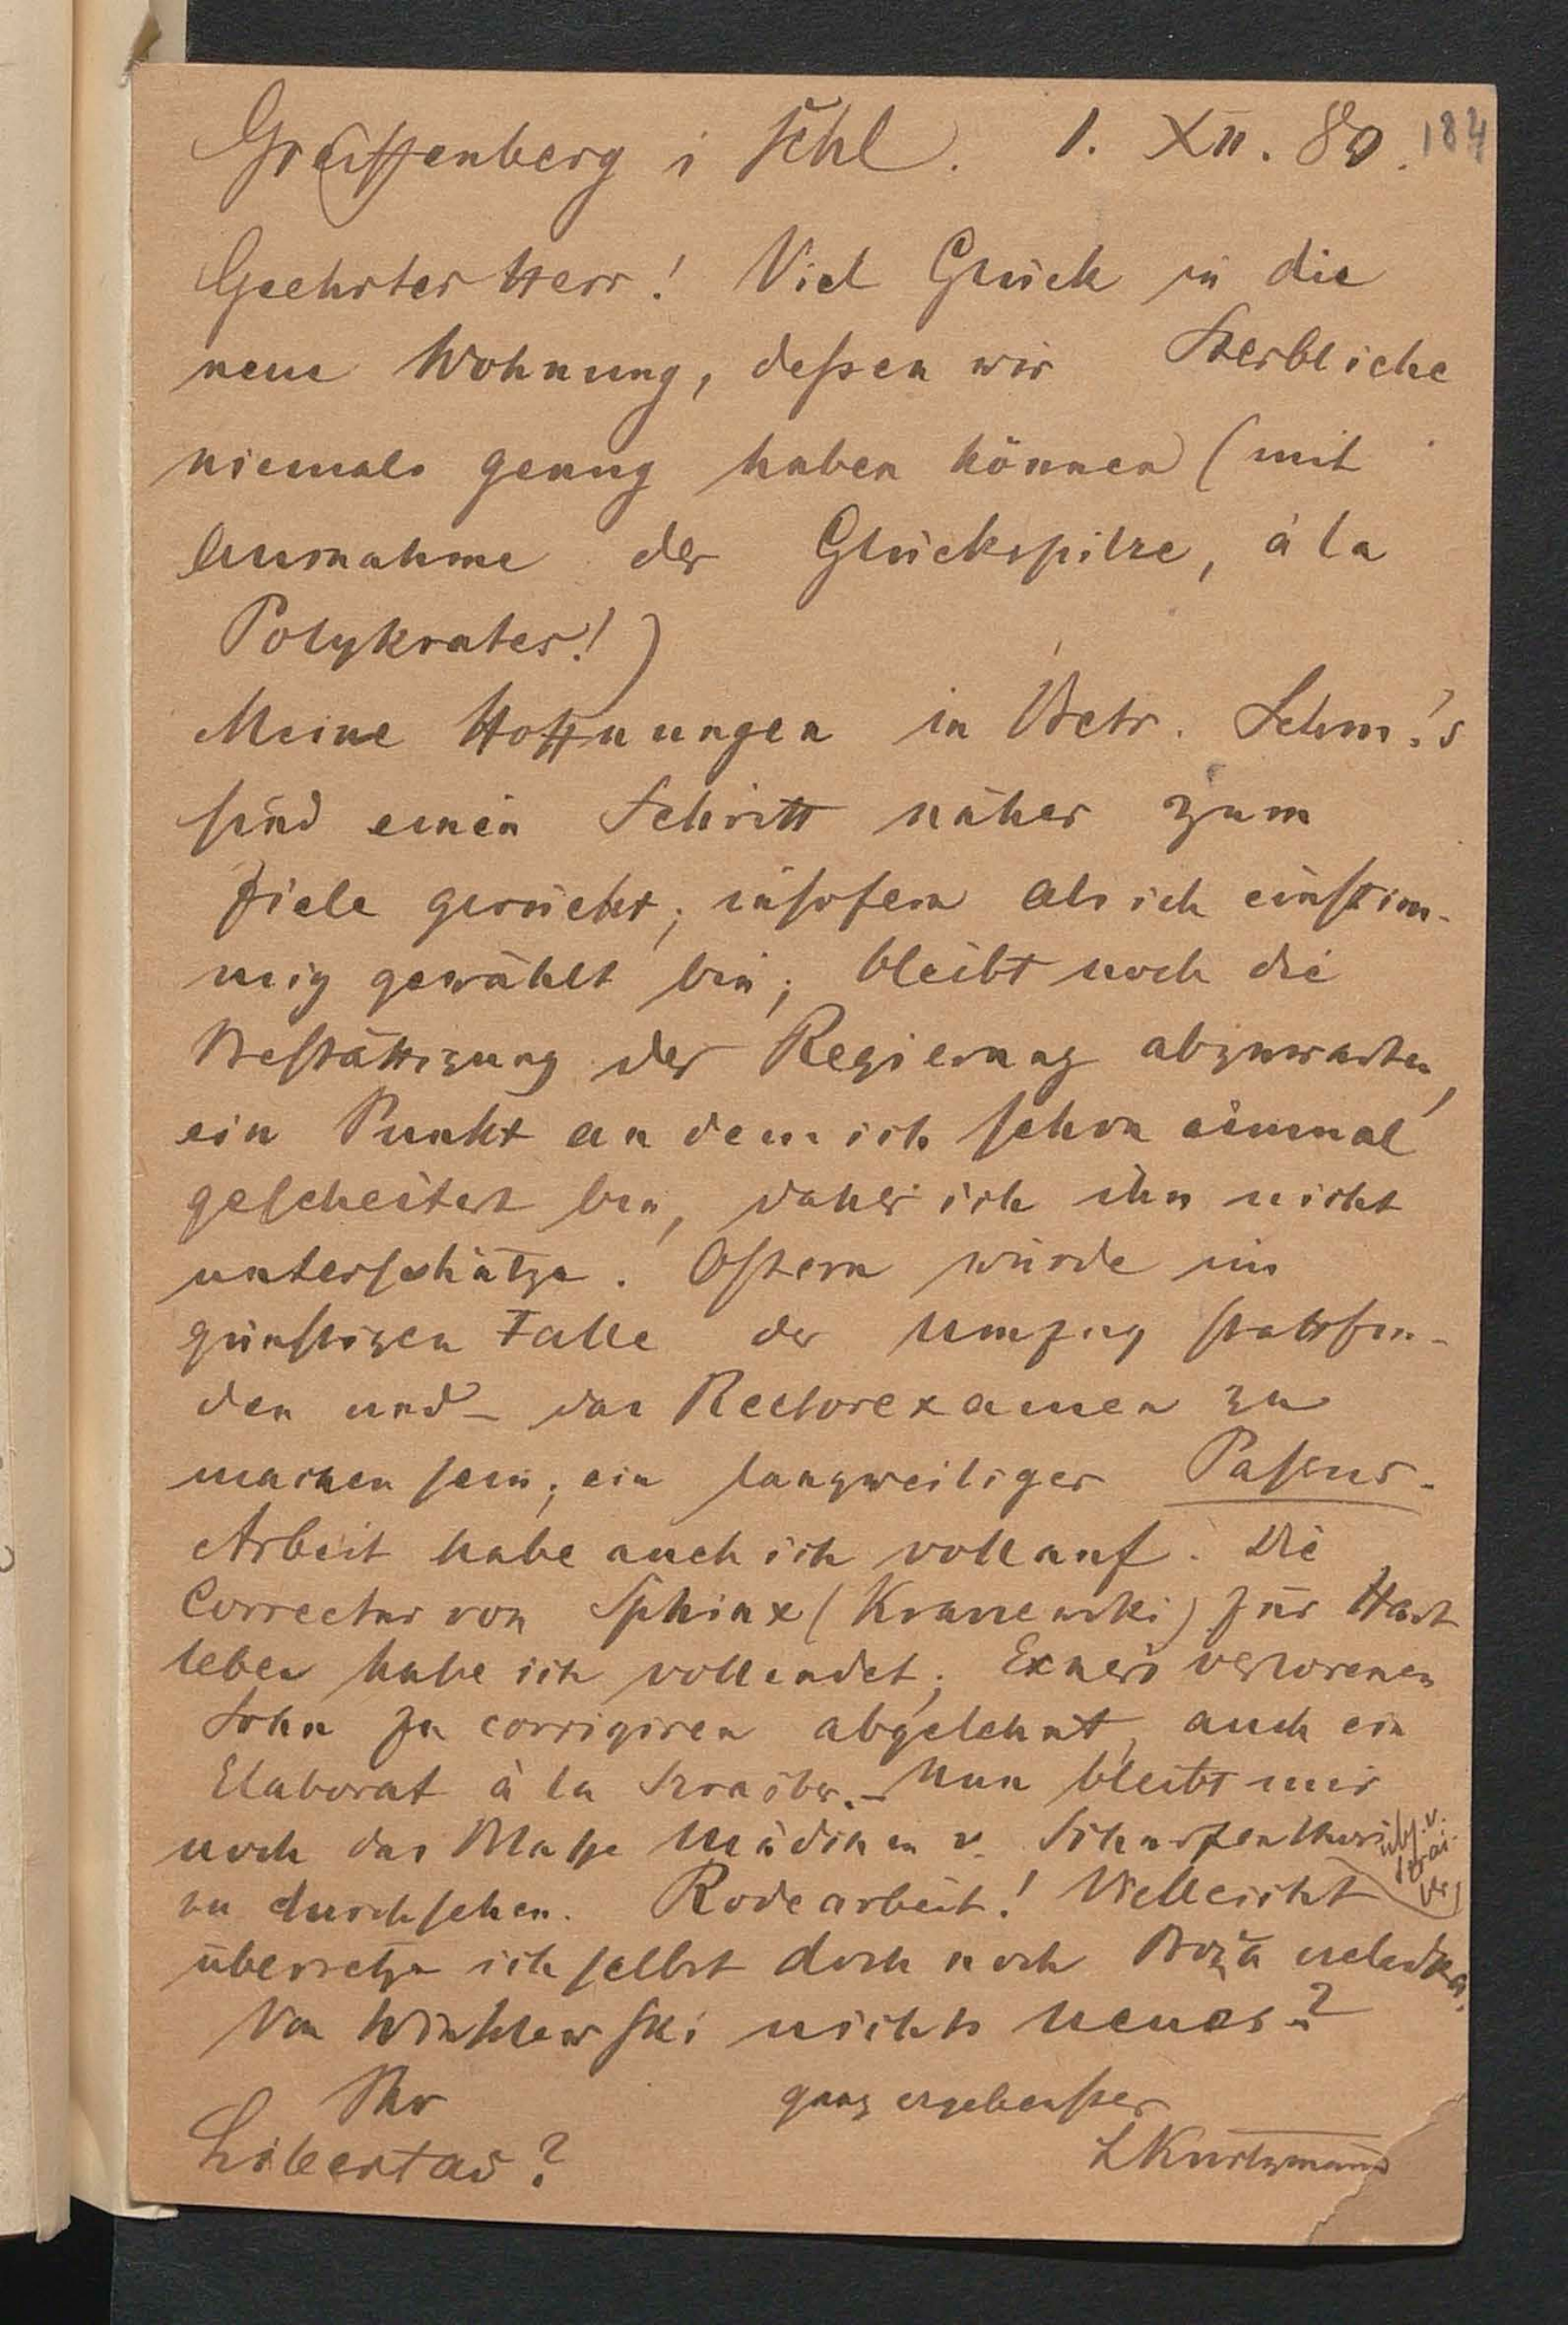 Greiffenberg i Schl. 1. XII. 80. 184
Geehrter Herr! Viel Glück in die
neue Wohnung, deßen wir Sterbliche
niemals genug haben können (mit
Ausnahme der Glückspilze, à la
Polykrates!)
Meine Hoffnungen in Betr. Schm.'s
sind einen Schritt näher zum
Ziele gerückt, insofern als ich einstim-
mig gewählt bin; bleibt noch die
Bestättigung der Regierung abzuwarten,
ein Punkt an dem ich schon einmal
gescheitert bin, daher ich ihn nicht
unterschätze. Ostern würde im
günstigen Falle der Umzug stattfin-
den und – das Rectorexamen zu
machen sein; ein langweiliger Passus.
Arbeit habe auch ich vollauf. Die
Correctur von Sphinx (Kraszewski) für Hart
leben habe ich vollendet; Exners verlorenen
Sohn zu corrigiren abgelehnt, auch ein
Elaborat à la – Nun bleibt mir
noch das Blasse Mädchen v.
zu durchsehen. Rodearbeit! Vielleicht
übersetze ich selbst doch noch Boża
Von nichts neues?
Ihr ganz ergebenster
Libertas? LKurtzmann